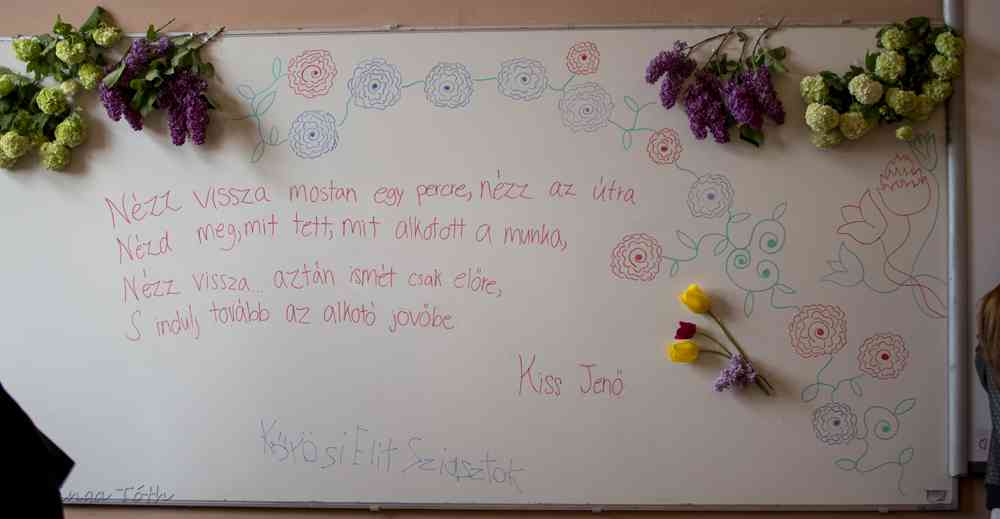 Nézz vissza mostan egy percre, nézz az útra
Nézd meg, mit tett, mit alkotott a munka,
Nézz vissza... aztán ismét csak előre,
S indulj tovább az alkotó jovőbe
Kiss Jenő
Kőrösi Elit Sziasztok
Tóth